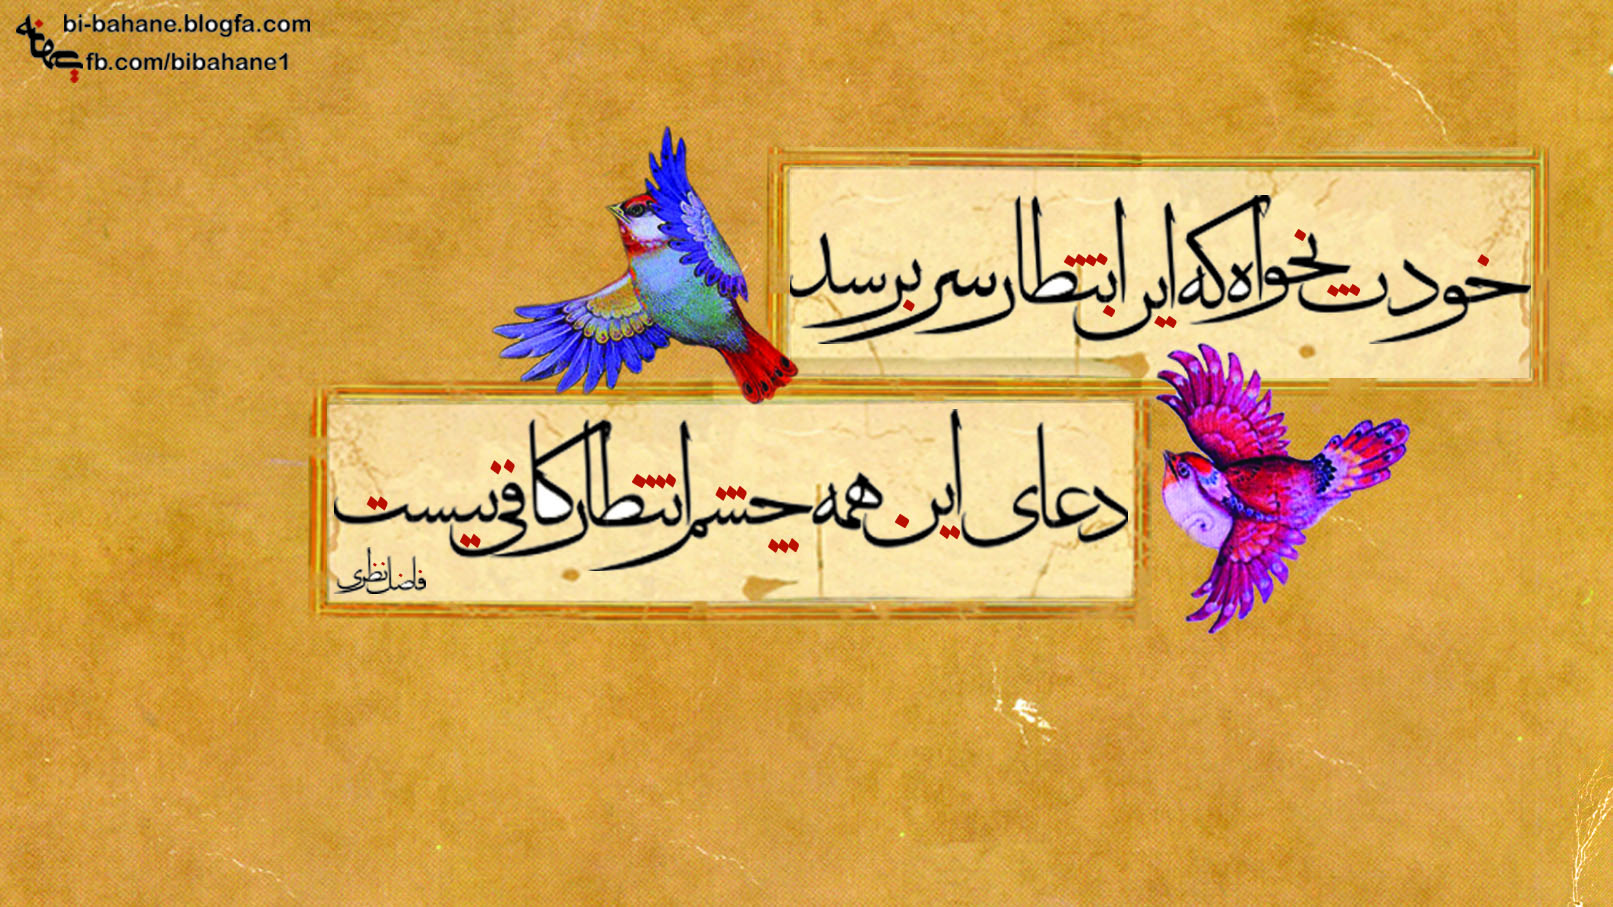 بی بهانه
bi-bahane.blogfa.com
fb.com/bibahane1
خودت بخواه که این انتظار سر برسد
دعای این همه چشم انتظار کافی نیست
فاضل نظری